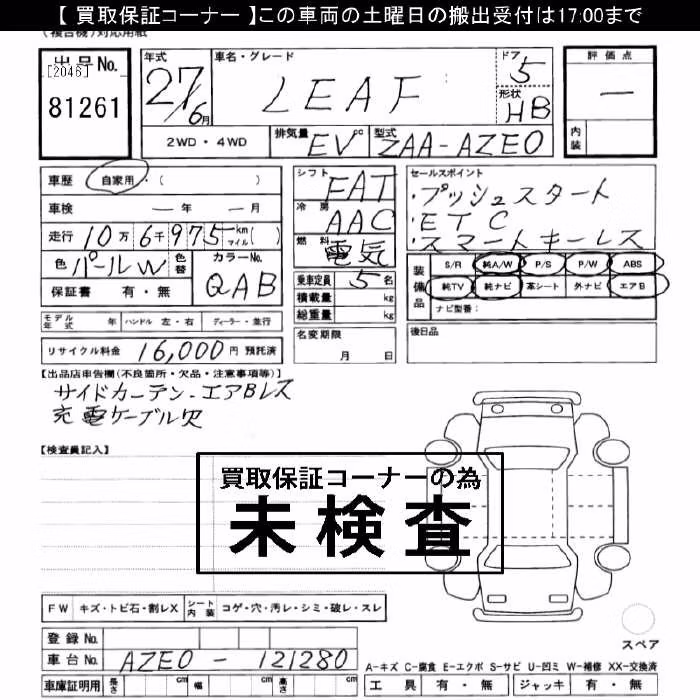 【 買取保証コーナー 】この車両の土曜日の搬出受付は17:00まで
(複合機)対応用紙
出品No. [2046] 81261
年式 27/6月
車名・グレード LEAF
ドア 5
形状 HB
評価点 —
内装
2WD・4WD
排気量 EV cc
型式 ZAA-AZE0
車歴 自家用・( )
車検 — 年 — 月
走行 10万6千975km マイル( )
色 パールW 色替 カラーNo. QAB
保証書 有・無
モデル年式 年 ハンドル 左・右 ディーラー・並行
リサイクル料金 16,000円 預託済
シフト FAT
冷房 AAC
燃料 電気
乗車定員 5名
積載量 kg
総重量 kg
名変期限 月 日
セールスポイント
・プッシュスタート
・ETC
・スマートキーレス
装備品 S/R 純A/W P/S P/W ABS
純TV 純ナビ 革シート 外ナビ エアB
ナビ型番:
後日品
【出品店申告欄(不良箇所・欠品・注意事項等)】
サイドカーテン-エアBレス
充電ケーブル欠
【検査員記入】
買取保証コーナーの為
未検査
FW キズ・トビ石・割レX シート内装 コゲ・穴・汚レ・シミ・破レ・スレ
登録No.
車台No. AZE0-121280
車庫証明用 長さ cm 幅 cm 高さ cm
スペア
A-キズ C-腐食 E-エクボ S-サビ U-凹ミ W-補修 XX-交換済
工具 有・無 ジャッキ 有・無